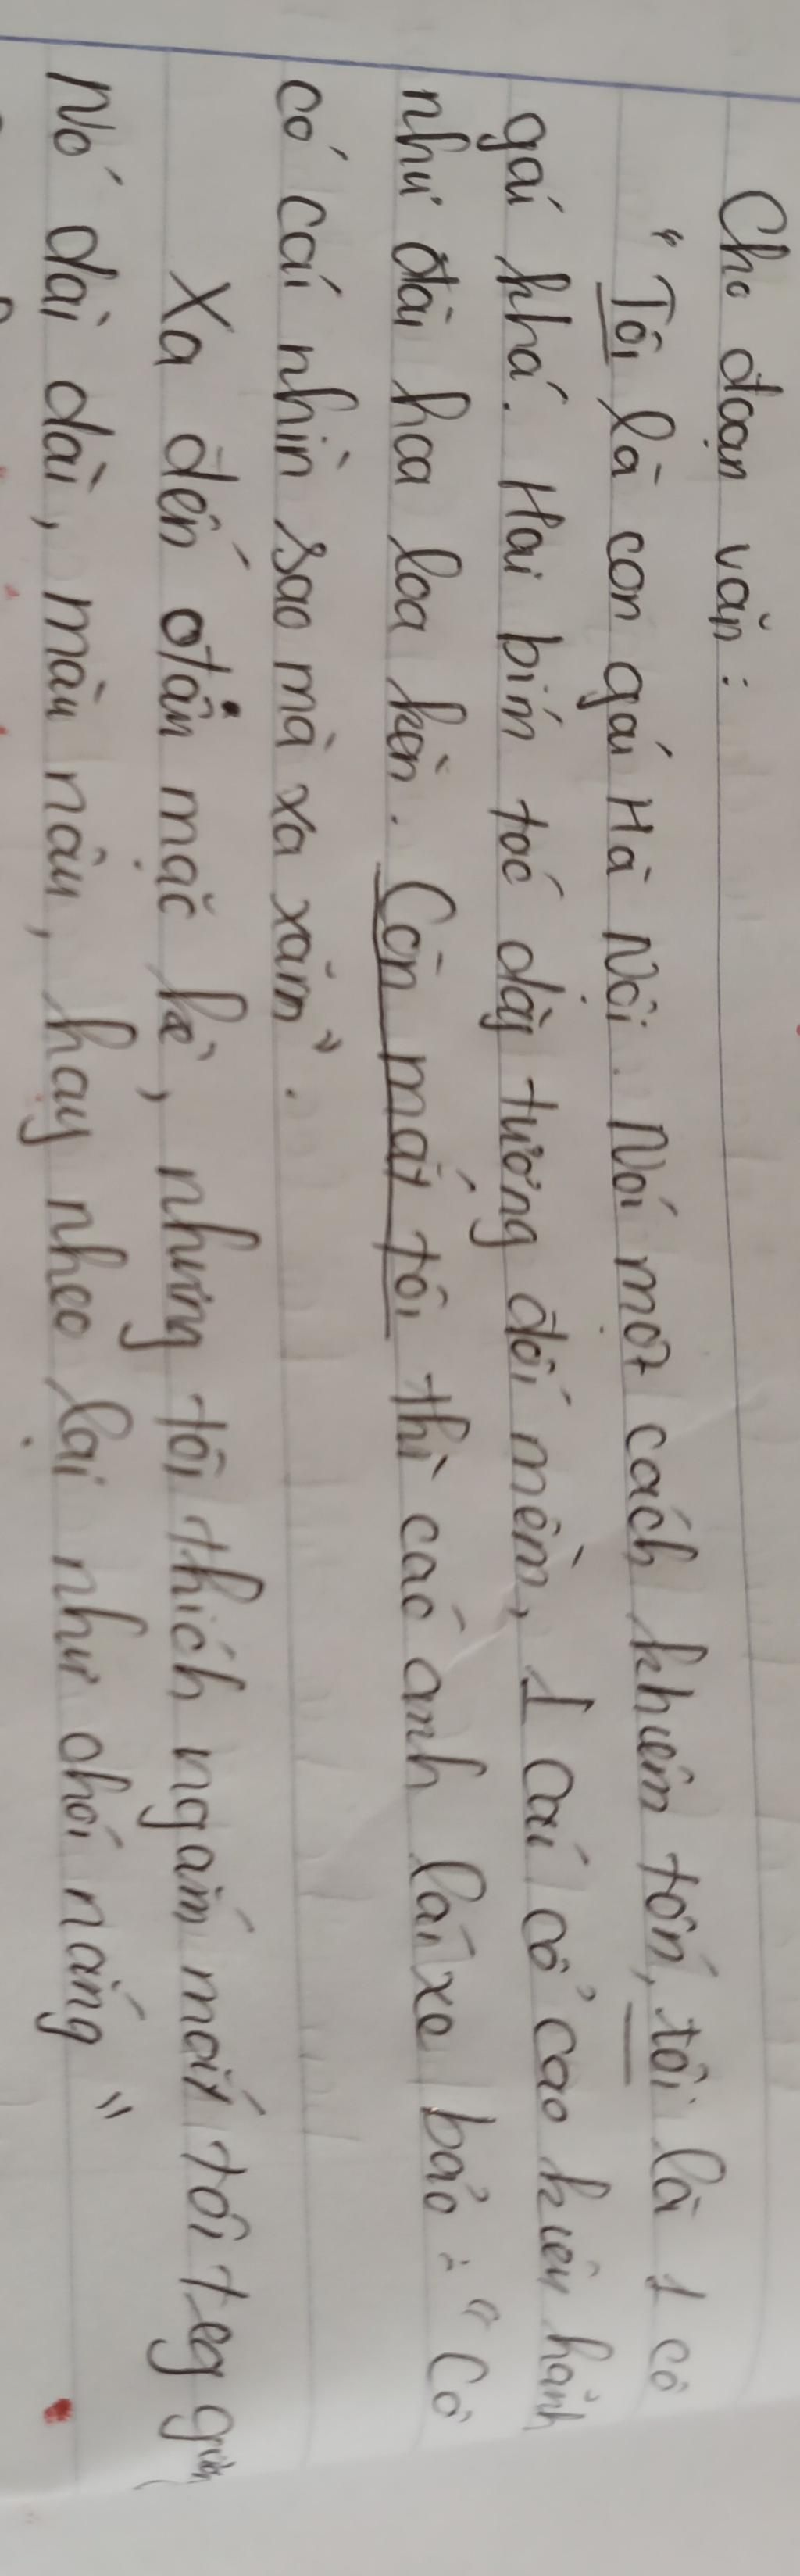 Cho đoạn văn:
"Tôi là con gái Hà Nội. Nói một cách khiêm tốn, tôi là 1 cô
gái khá. Hai bím tóc dày tương đối mềm, 1 cái cổ cao kiêu hãnh
như đài hoa loa kèn. Còn mắt tôi thì các anh lái xe bảo: "Cô
có cái nhìn sao mà xa xăm".
Xa đến đâu mặc kệ, nhưng tôi thích ngắm mắt tôi trg gương
Nó dài dài, màu nâu, hay nheo lại như chói nắng"